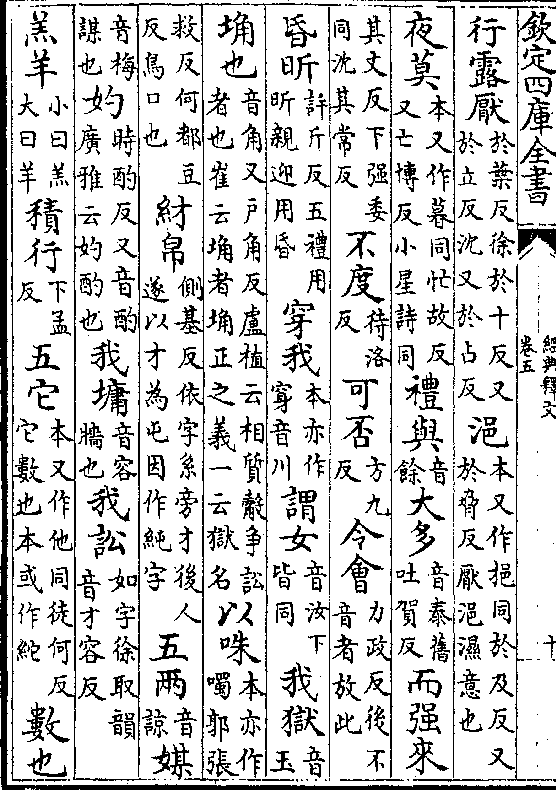 欽定四庫全書
經典釋文
卷五
十
行露厭於葉反徐於十反又於立反沈又於占反浥本又作挹同於及反又於脅反厭浥濕意也
夜莫本又作暮同忙故反又亡博反小星詩同禮與音餘大多音泰舊吐賀反而强來
其丈反下强委同沈其常反不度待洛反可否方九反令會力政反後不音者放此
昏昕許斤反五禮用昕親迎用昏穿我本亦作穿音川謂女音汝下皆同我獄音玉
埆也音角又戶角反盧植云相質觳爭訟者也崔云埆者埆正之義一云獄名以咮本亦作噣郭張
救反何都豆反鳥口也紂帛側基反依字糸旁才後人遂以才為屯因作純字五兩音諒媒
音梅謀也妁時酌反又音酌廣雅云妁酌也我墉音容牆也我訟如字徐取韻音才容反
羔羊小曰羔大曰羊積行下孟反五它本又作他同徒何反它數也本或作紽數也